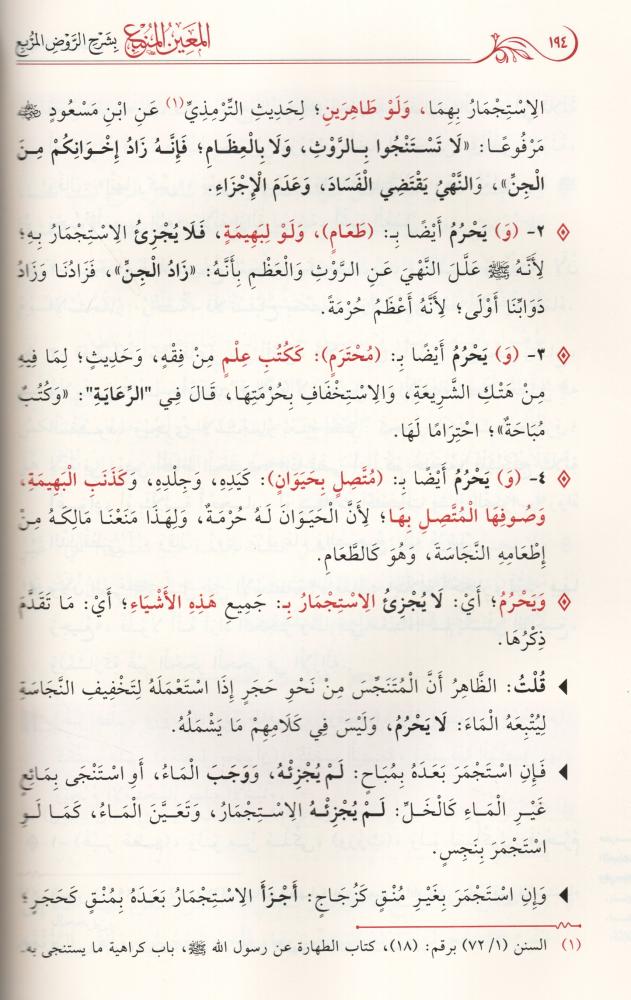 ١٩٤
المعين الممتع بشرح الروض المربع
الِاسْتِجْمَارُ بِهِمَا، وَلَوْ طَاهِرَينِ؛ لِحَدِيثِ التِّرْمِذِيِّ(١) عَنِ ابْنِ مَسْعُودٍ ﷺ
مَرْفُوعًا: «لَا تَسْتَنْجُوا بِالرَّوْثِ، وَلَا بِالْعِظَامِ؛ فَإِنَّهُ زَادُ إِخْوَانِكُمْ مِنَ
الْجِنِّ»، وَالنَّهْيُ يَقْتَضِي الْفَسَادَ، وَعَدَمَ الْإِجْزَاءِ.
٢- (وَ) يَحْرُمُ أَيْضًا بِـ: (طَعَامٍ)، وَلَوْ لِبَهِيمَةٍ، فَلَا يُجْزِئُ الِاسْتِجْمَارُ بِهِ؛
لِأَنَّهُ ﷺ عَلَّلَ النَّهْيَ عَنِ الرَّوْثِ وَالْعَظْمِ بِأَنَّهُ: «زَادُ الْجِنِّ»، فَزَادُنَا وَزَادُ
دَوَابِّنَا أَوْلَى؛ لِأَنَّهُ أَعْظَمُ حُرْمَةً.
٣- (وَ) يَحْرُمُ أَيْضًا بِـ: (مُحْتَرَمٍ): كَكُتُبِ عِلْمٍ مِنْ فِقْهٍ، وَحَدِيثٍ؛ لِمَا فِيهِ
مِنْ هَتْكِ الشَّرِيعَةِ، وَالِاسْتِخْفَافِ بِحُرْمَتِهَا، قَالَ فِي "الرِّعَايَةِ": «وَكُتُبٌ
مُبَاحَةٌ»؛ احْتِرَامًا لَهَا.
٤- (وَ) يَحْرُمُ أَيْضًا بِـ: (مُتَّصِلٍ بِحَيَوَانٍ): كَيَدِهِ، وَجِلْدِهِ، وَكَذَنَبِ الْبَهِيمَةِ،
وَصُوفِهَا الْمُتَّصِلِ بِهَا؛ لِأَنَّ الْحَيَوَانَ لَهُ حُرْمَةٌ، وَلِهَذَا مَنَعْنَا مَالِكَهُ مِنْ
إِطْعَامِهِ النَّجَاسَةَ، وَهُوَ كَالطَّعَامِ.
وَيَحْرُمُ؛ أَيْ: لَا يُجْزِئُ الِاسْتِجْمَارُ بِـ: جَمِيعِ هَذِهِ الْأَشْيَاءِ؛ أَيْ: مَا تَقَدَّمَ
ذِكْرُهَا.
قُلْتُ: الظَّاهِرُ أَنَّ الْمُتَنَجِّسَ مِنْ نَحْوِ حَجَرٍ إِذَا اسْتَعْمَلَهُ لِتَخْفِيفِ النَّجَاسَةِ
لِيُتْبِعَهُ الْمَاءَ: لَا يَحْرُمُ، وَلَيْسَ فِي كَلَامِهِمْ مَا يَشْمَلُهُ.
فَإِنِ اسْتَجْمَرَ بَعْدَهُ بِمُبَاحٍ: لَمْ يُجْزِئْهُ، وَوَجَبَ الْمَاءُ، أَوِ اسْتَنْجَى بِمَائِعٍ
غَيْرِ الْمَاءِ كَالْخَلِّ: لَمْ يُجْزِئْهُ الِاسْتِجْمَارُ، وَتَعَيَّنَ الْمَاءُ، كَمَا لَوِ
اسْتَجْمَرَ بِنَجِسٍ.
وَإِنِ اسْتَجْمَرَ بِغَيْرِ مُنْقٍ كَزُجَاجٍ: أَجْزَأَ الِاسْتِجْمَارُ بَعْدَهُ بِمُنْقٍ كَحَجَرٍ؛
(١) السنن (١/ ٧٢) برقم: (١٨)، كتاب الطهارة عن رسول الله ﷺ، باب كراهية ما يستنجى به.